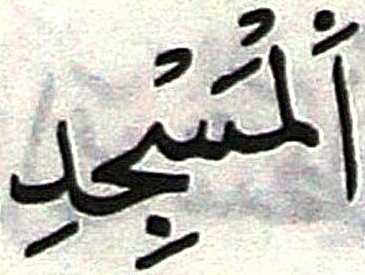 اَلْمَسْجِدِ